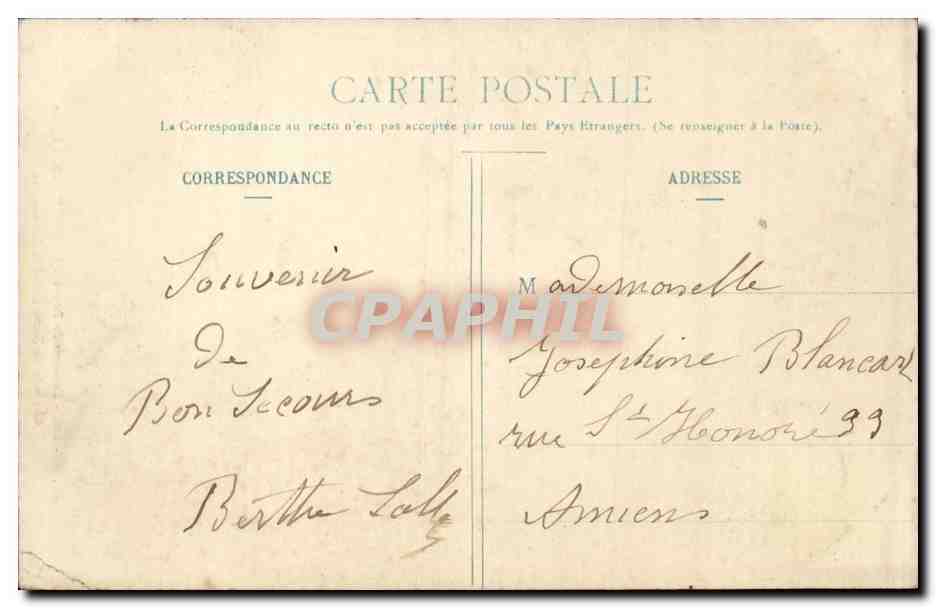 CARTE POSTALE
La Correspondance au recto n'est pas acceptée par tous les Pays Etrangers. (Se renseigner à la Poste).
CORRESPONDANCE
Souvenir
de
Bon Secours
Berthe
ADRESSE
Mademoiselle
Josephine Blancart
rue St Honoré 99
Amiens
CPAPHIL